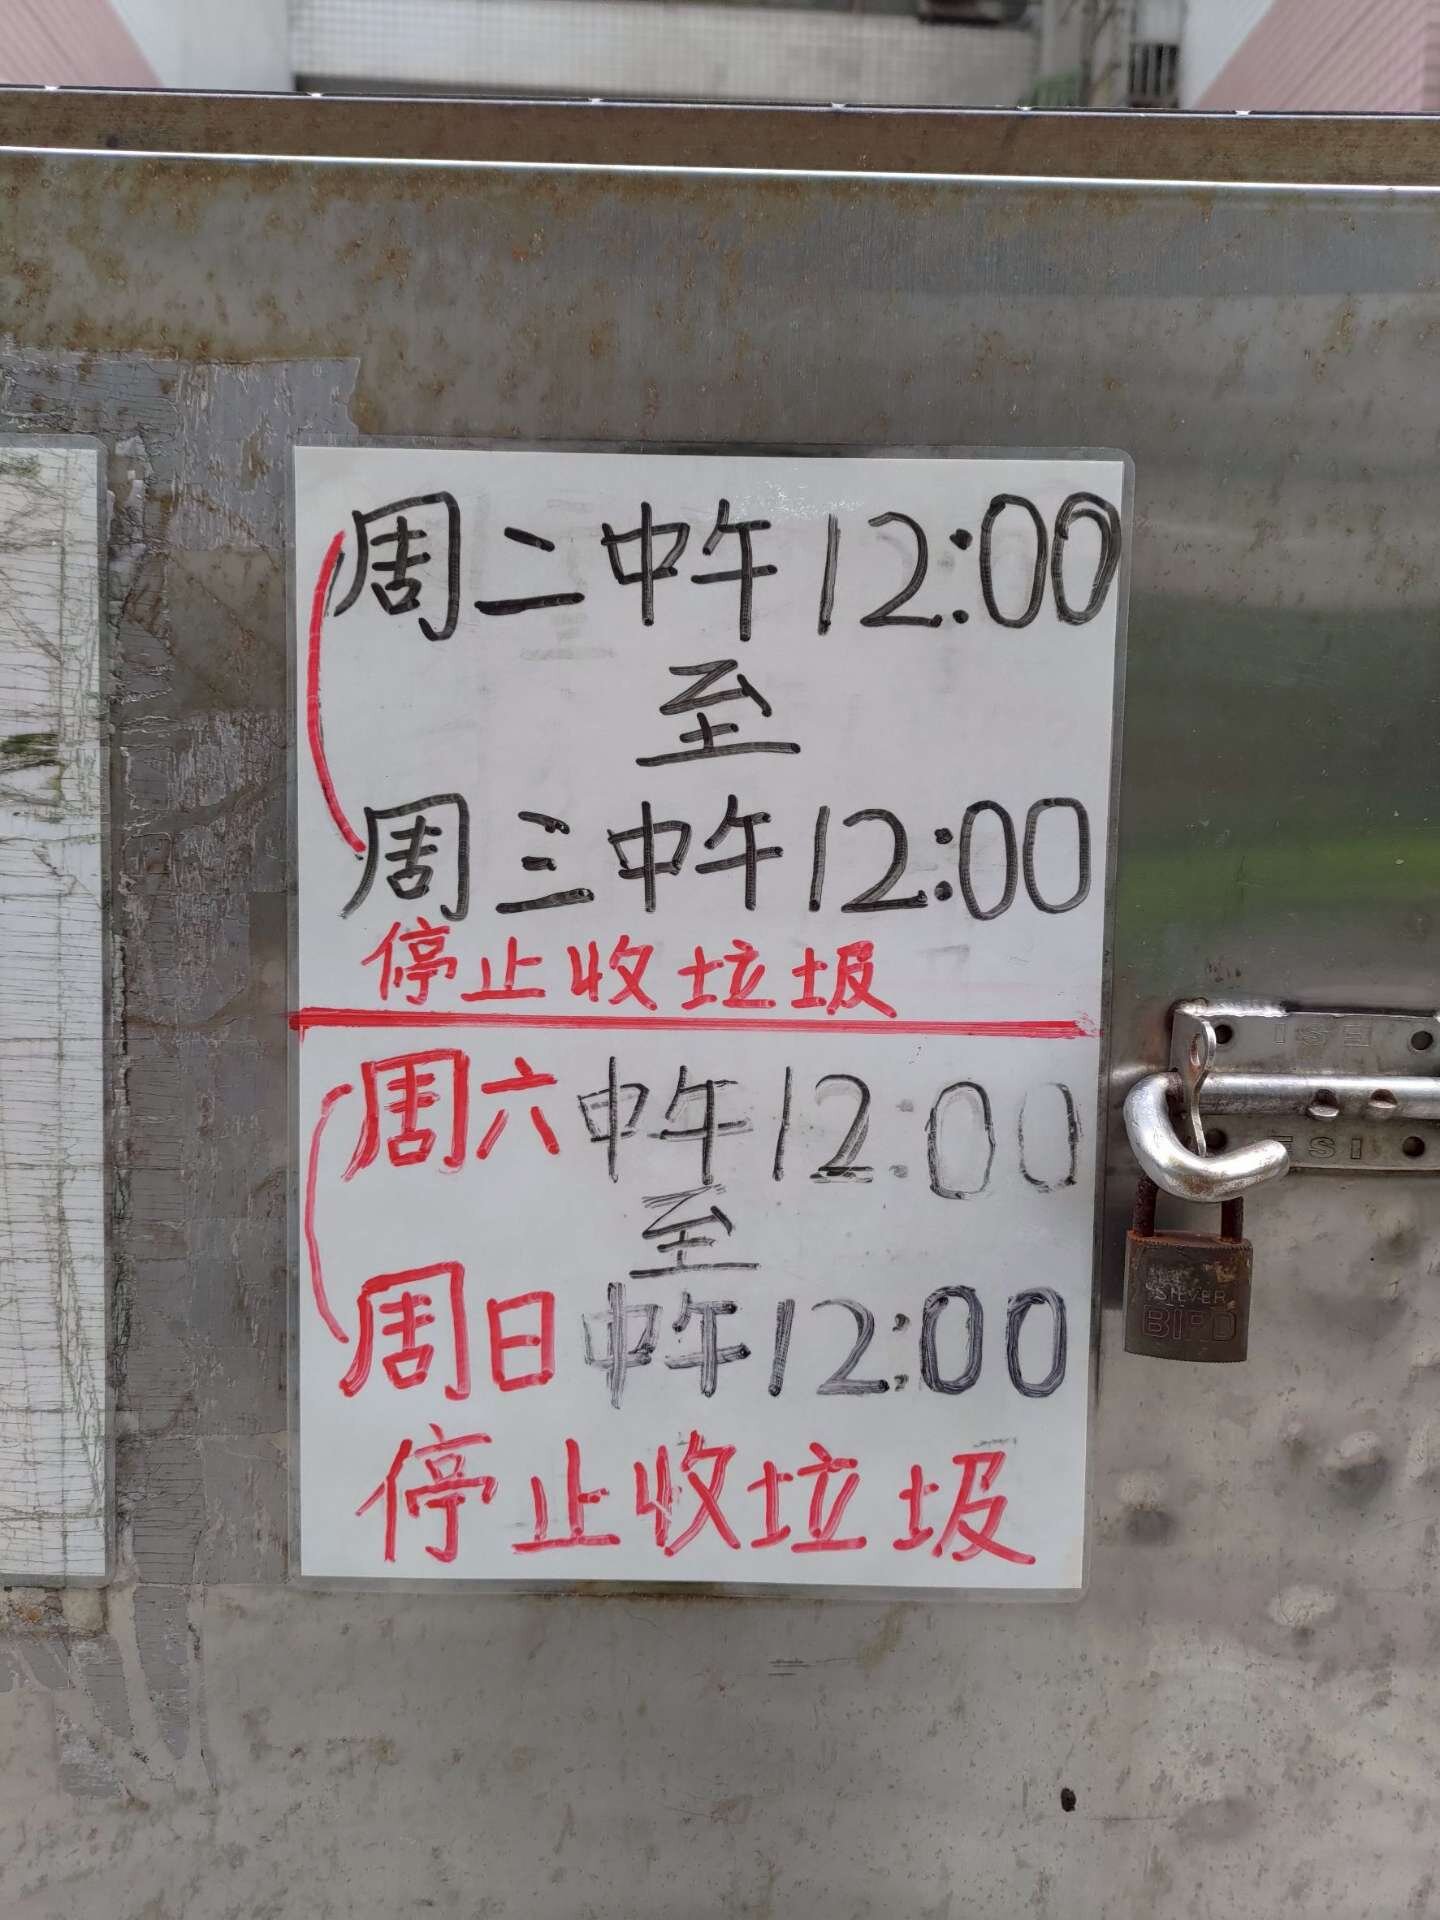 周二中午12:00
至
周三中午12:00
停止收垃圾
周六中午12:00
至
周日中午12:00
停止收垃圾
ISE
ISE
SILVER
BIRD